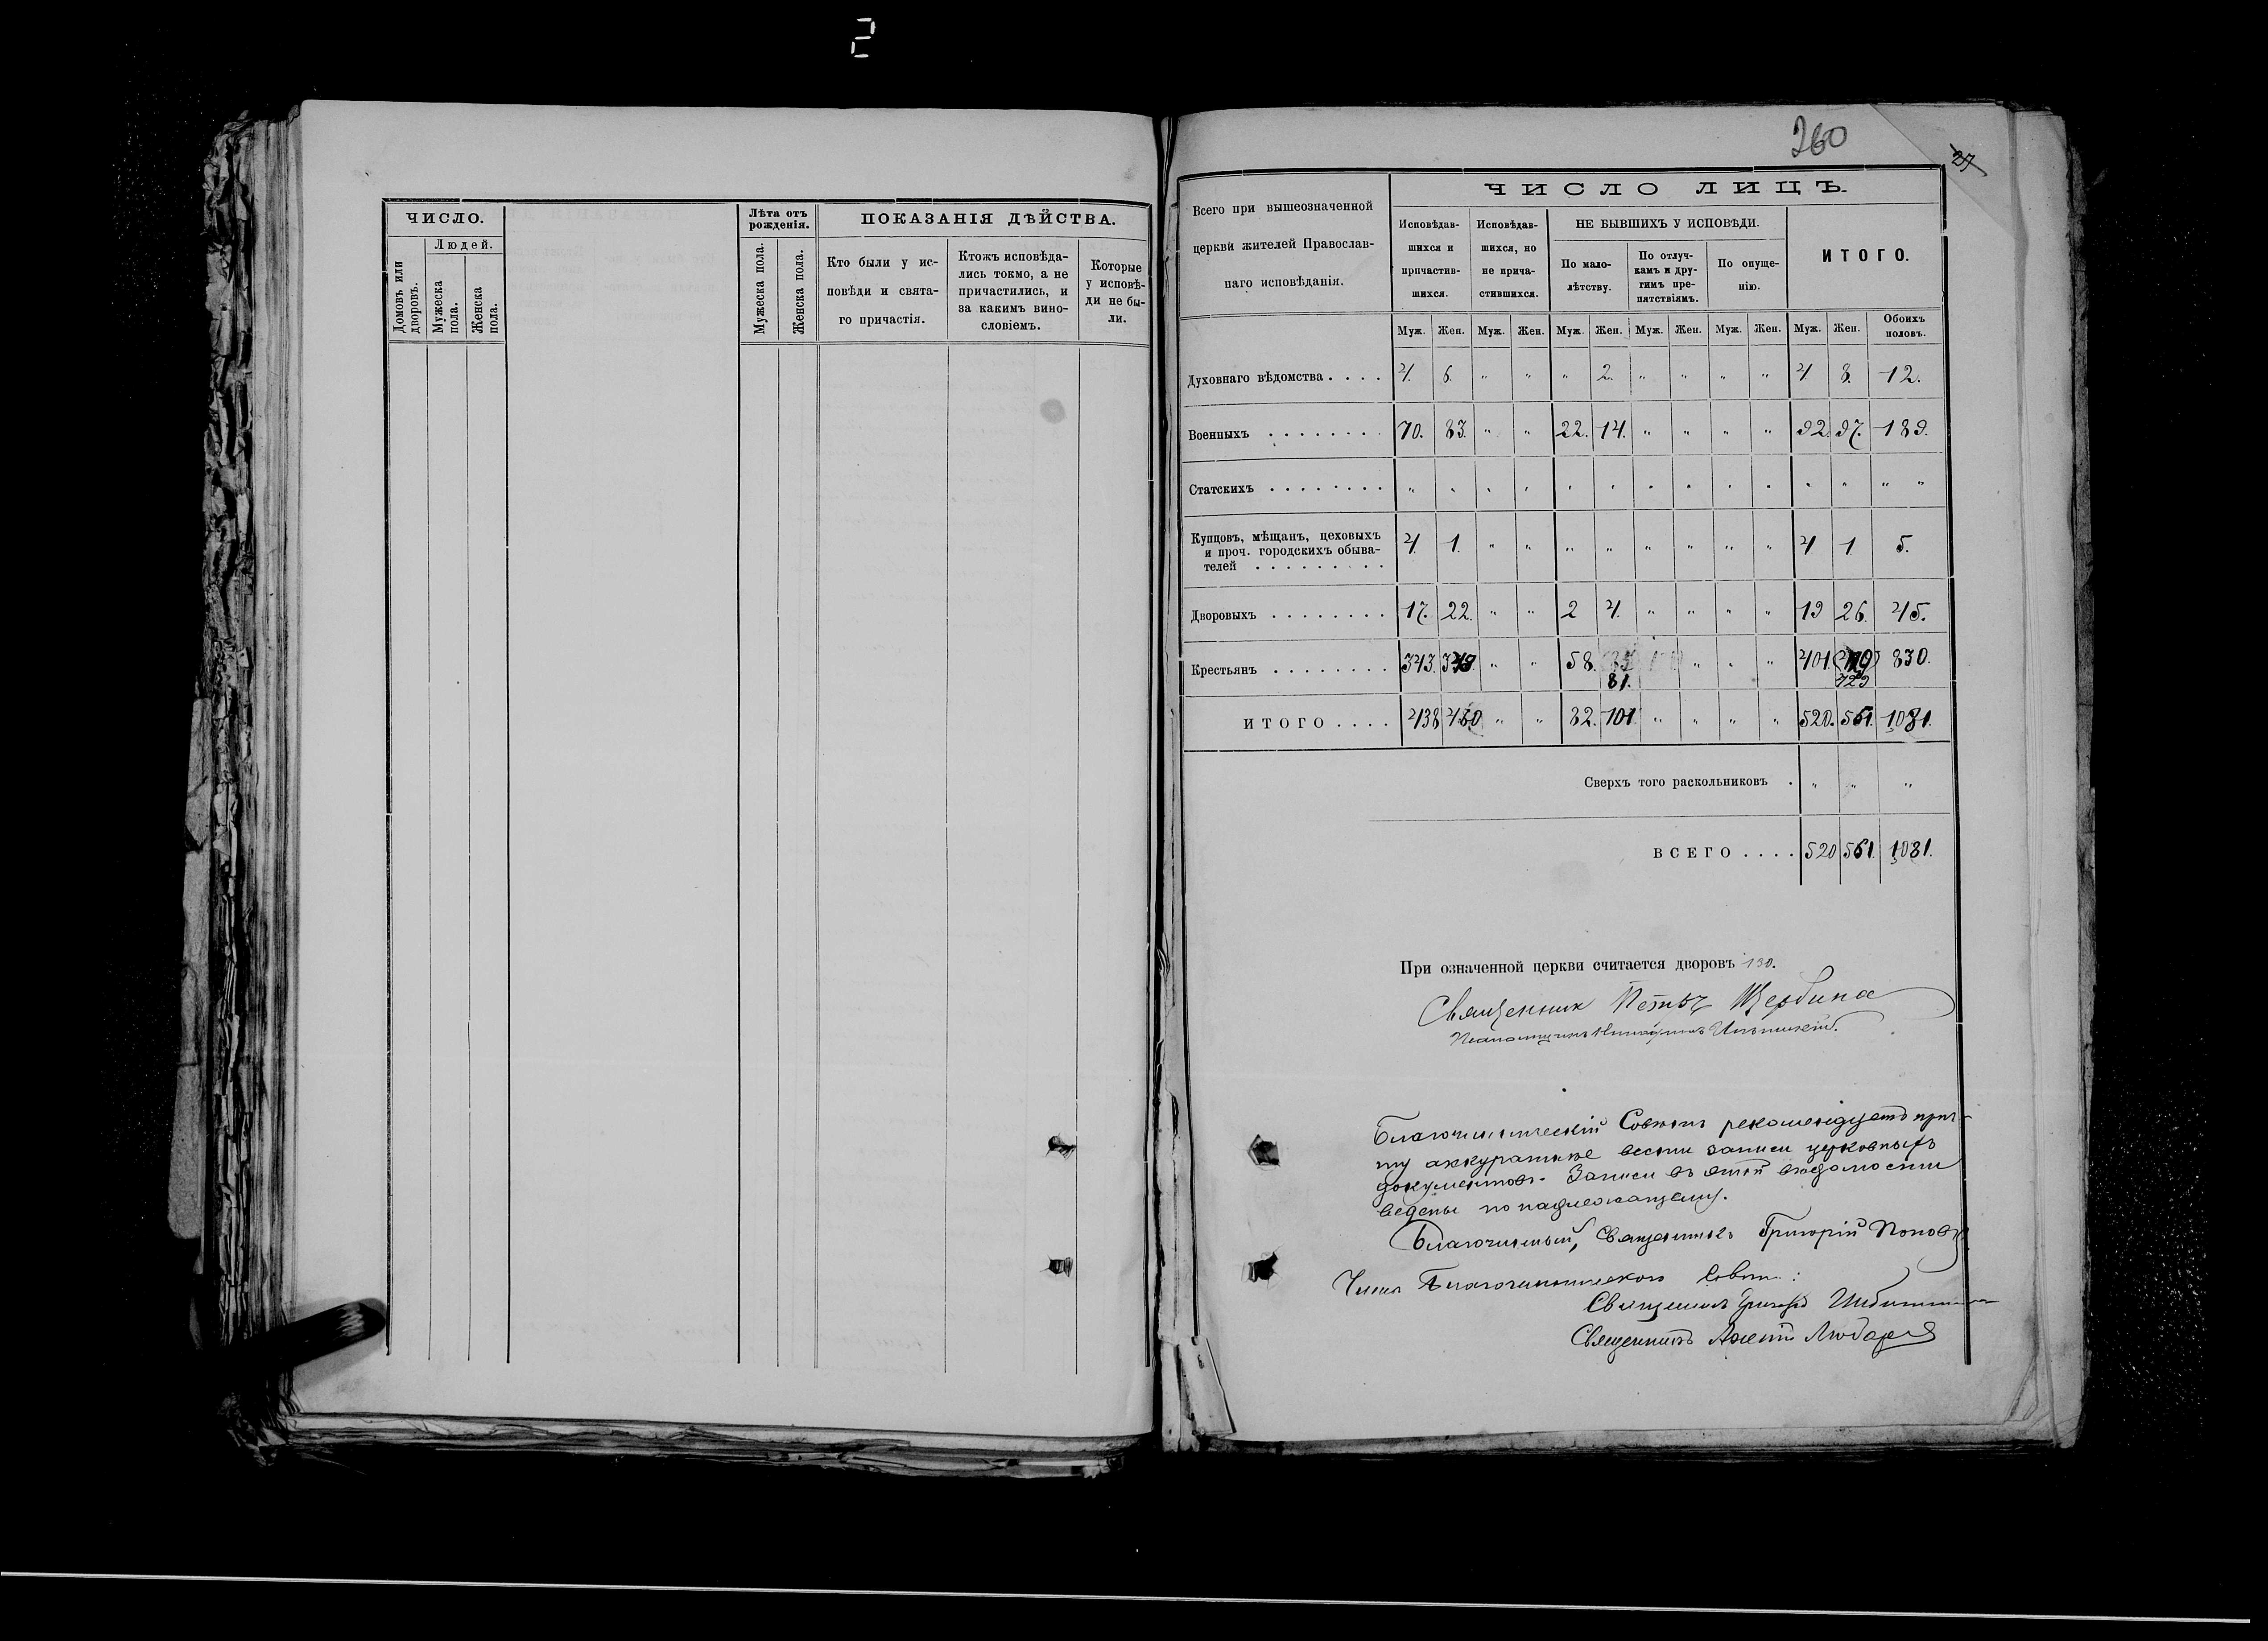 2
ЧИСЛО.
Людей.
Домовъ или дворовъ.
Мужеска пола.
Женска пола.
Лѣта отъ рожденія.
Мужеска пола.
Женска пола.
ПОКАЗАНІЯ ДѢЙСТВА.
Кто были у ис-
повѣди и свята-
го причастія.
Ктожъ исповѣда-
лись токмо, а не
причастились, и
за какимъ вино-
словіемъ.
Которые
у исповѣ-
ди не бы-
ли.
260
27
Всего при вышеозначенной
церкви жителей Православ-
наго исповѣданія.
ЧИСЛО ЛИЦЪ.
Исповѣдав-
шихся и
причастив-
шихся.
Исповѣдав-
шихся, но
не прича-
стившихся.
НЕ БЫВШИХЪ У ИСПОВѢДИ.
По мало-
лѣтству.
По отлуч-
камъ и дру-
гимъ пре-
пятствіямъ.
По опуще-
нію.
ИТОГО.
Муж. Жен. Муж. Жен. Муж. Жен. Муж. Жен. Муж. Жен. Муж. Жен. Обоихъ половъ.
Духовнаго вѣдомства . . . . 4. 6. " " " 2. " " " " 4 8. 12.
Военныхъ . . . . . . . . 70. 83. " " 22. 14. " " " " 92. 97. 189.
Статскихъ . . . . . . . . " " " " " " " " " " " " " "
Купцовъ, мѣщанъ, цеховыхъ
и проч. городскихъ обыва-
телей . . . . . . . . . 4. 1. " " " " " " " " 4 1 5.
Дворовыхъ . . . . . . . . 17. 22. " " 2 4. " " " " 19 26. 45.
Крестьянъ . . . . . . . . 343. 348. " " 58. 81. " " " 401. 429 830.
ИТОГО . . . . 438 460 " " 82. 101 " " " " 520. 561. 1081.
Сверхъ того раскольниковъ . " " "
ВСЕГО . . . . 520 561. 1081.
При означенной церкви считается дворовъ 130.
Священник Петръ Щербина
Псаломщикъ
Благочинническій Совѣтъ рекомендуетъ прич-
ту аккуратнѣе вести записи церковныхъ
документовъ. Записи въ этой вѣдомости
ведены по надлежащему.
Благочинный, Священникъ Григорій Поповъ
Члены Благочинническаго Совѣта:
Священникъ
Священникъ